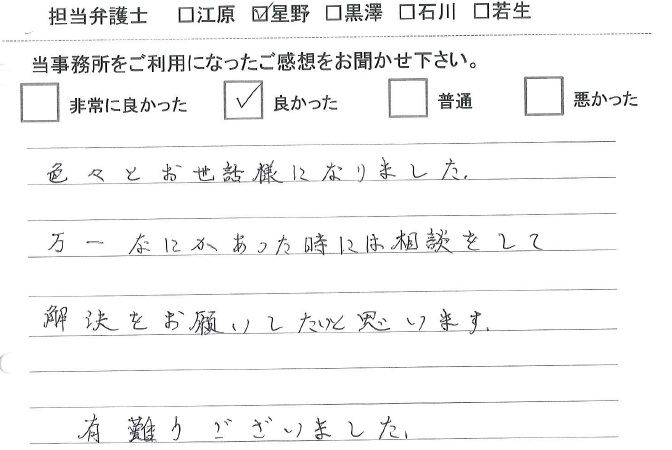 担当弁護士 □江原 ☑星野 □黒澤 □石川 □若生
当事務所をご利用になったご感想をお聞かせ下さい。
□ 非常に良かった ☑ 良かった □ 普通 □ 悪かった
色々とお世話様になりました.
万一なにかあった時には相談をして
解決をお願いしたいと思います.
有難うございました.